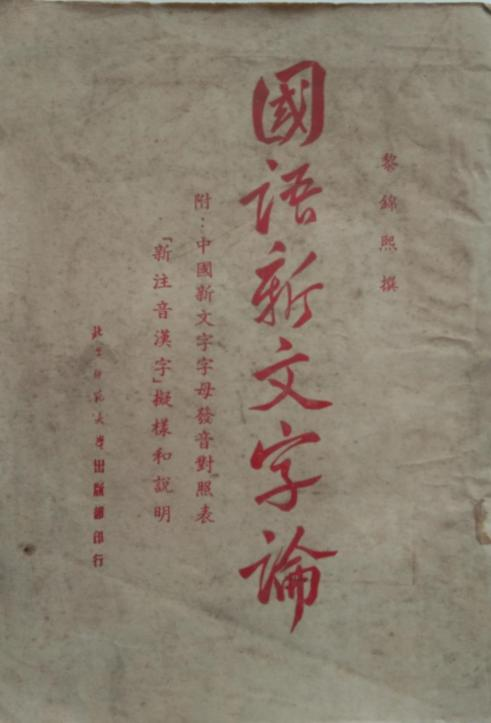 黎錦熙撰
國語新文字論
附:中國新文字字母發音對照表
「新注音漢字」擬樣和說明
北京師範大學出版部印行